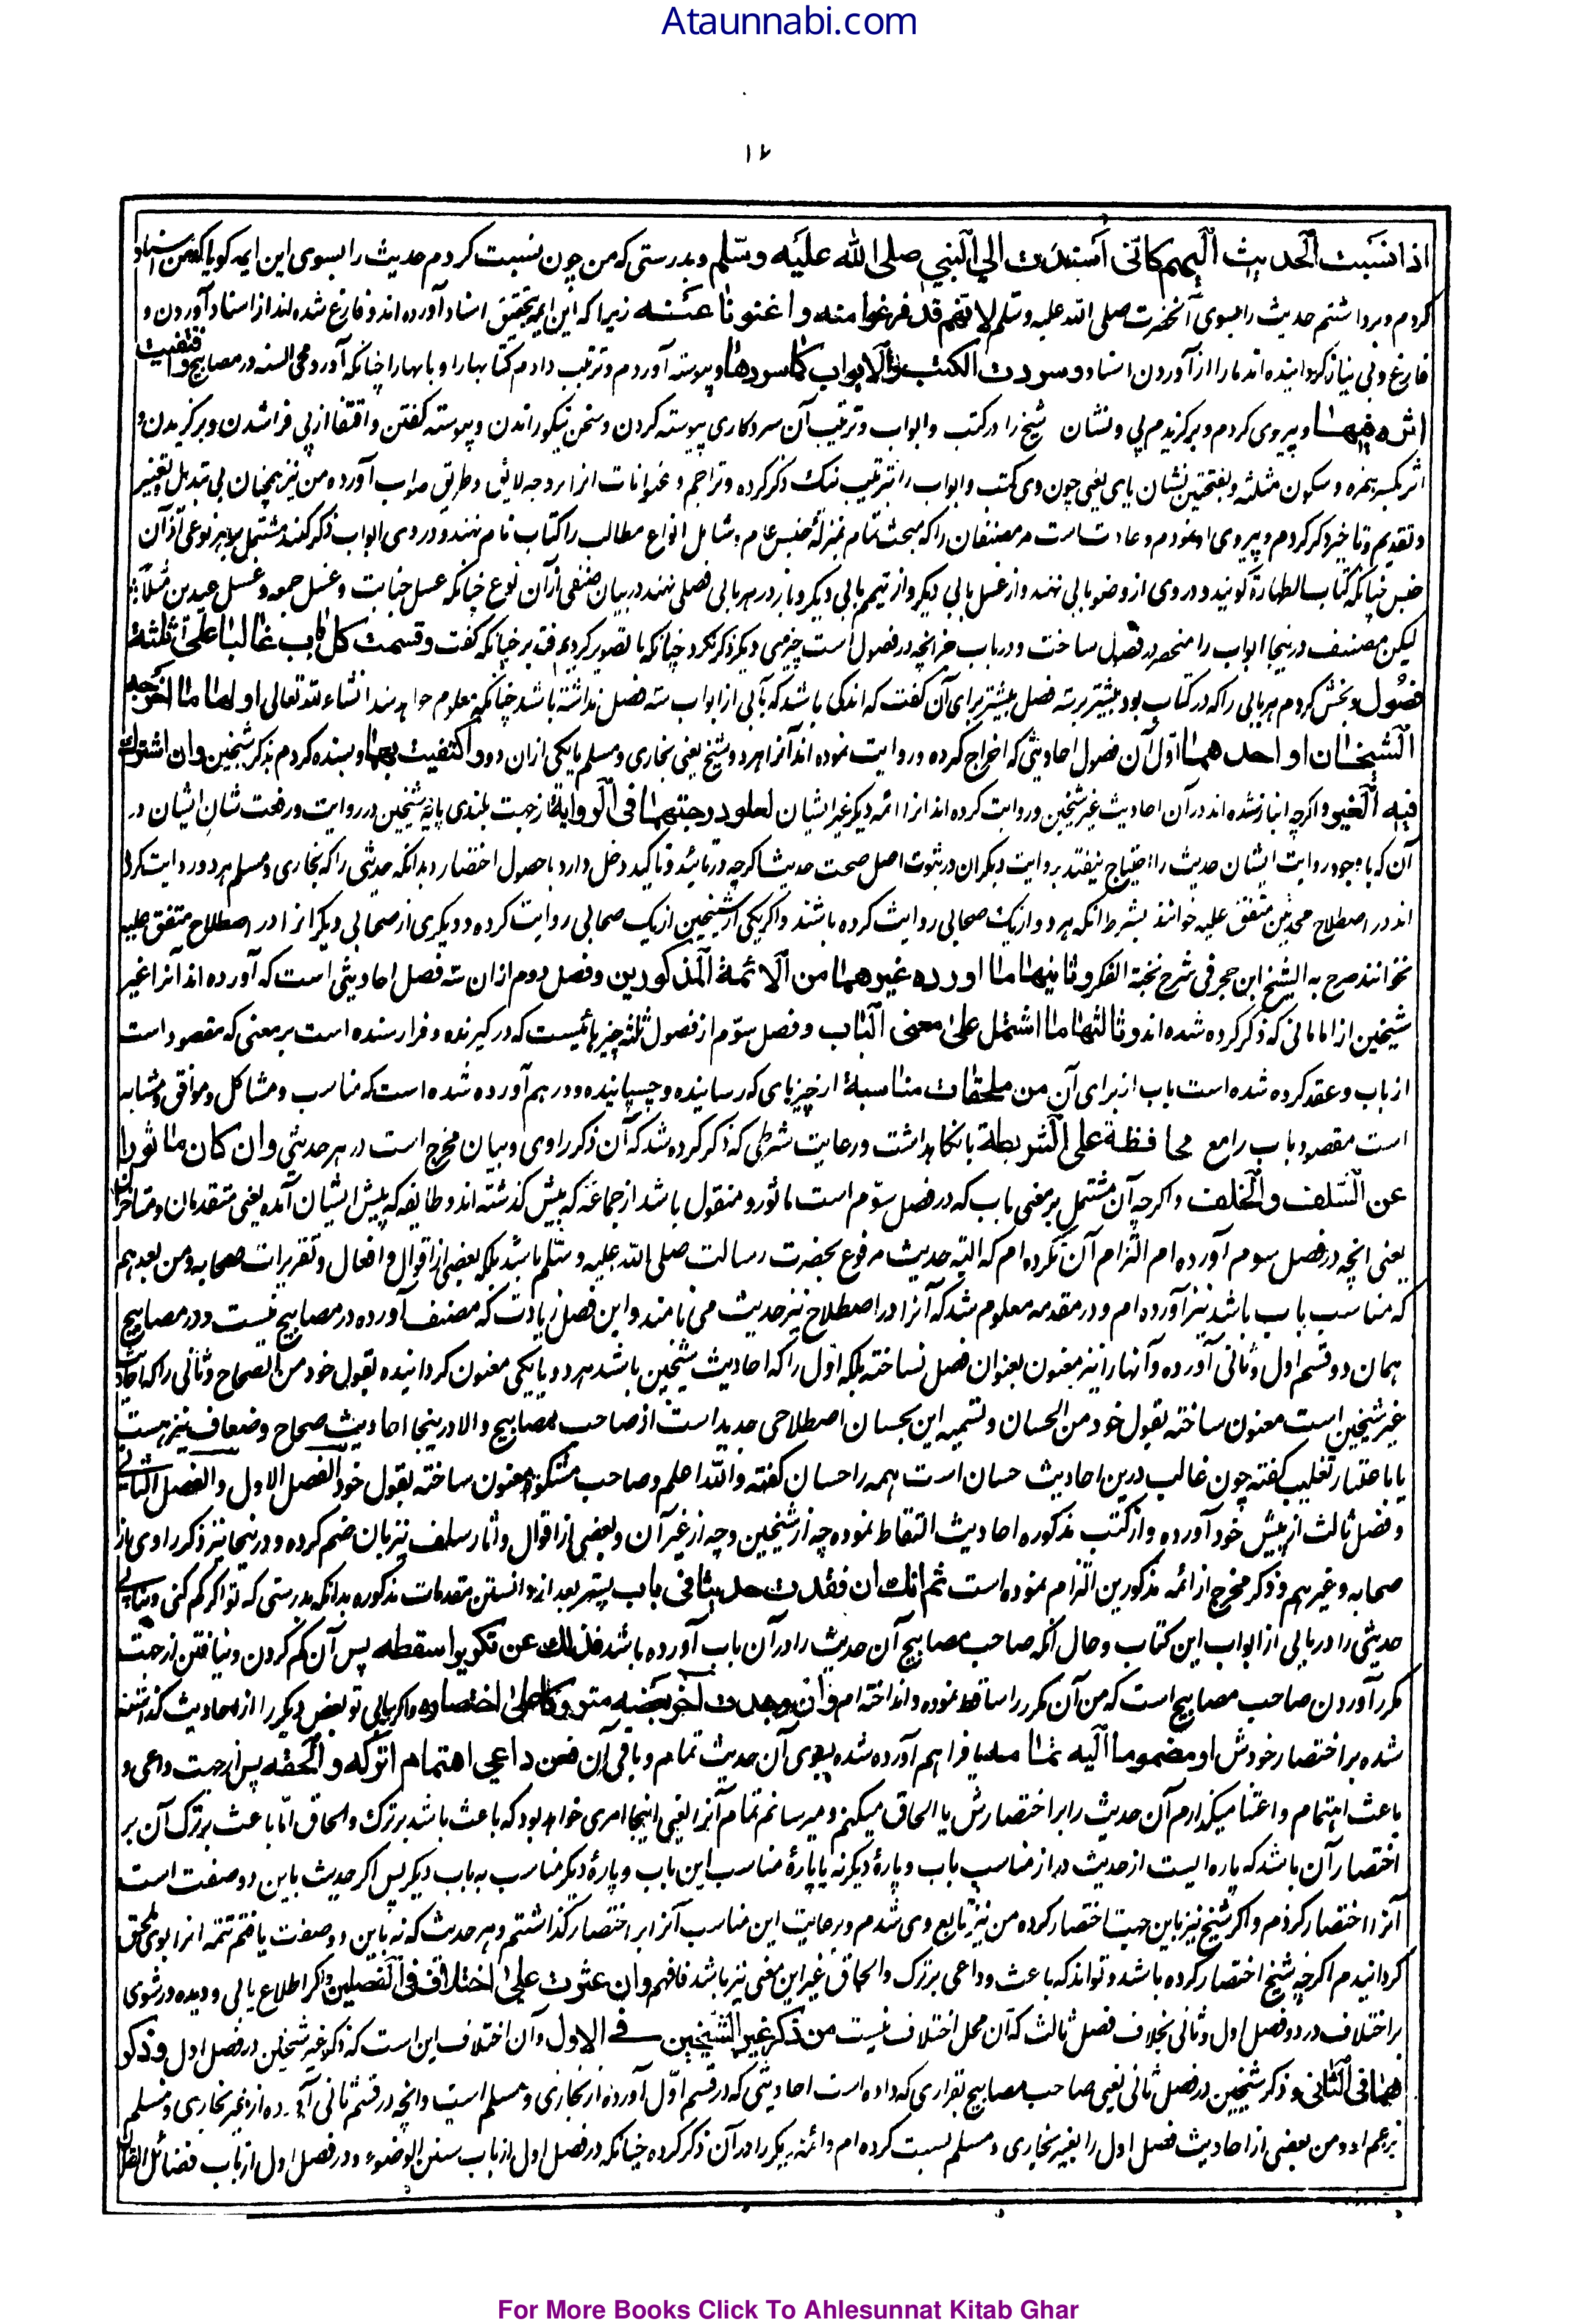 Ataunnabi.com
١٢
اذا نسبت الحديث اليهم كاني اسندت الي النبي صلى الله عليه وسلم وبدرستی که من چون نسبت کردم حدیث را بسوی این ایمه گویا که من اسناد
کردم و برداشتم حدیث را بسوی آنحضرت صلی الله علیه وسلم لانهم قد فرغوا منه واغنونا عنه زیرا که این ایمه بتحقیق اسناد آورده اند و فارغ شده اند از اسناد آوردن و
فارغ و بی نیاز گردانیده اند ما را از آوردن اسناد وسردت الكتب والابواب كما سردها و پیوسته آوردم و ترتیب دادم کتابها را و بابها را چنانکه آورد محی السنه در مصابیح واقتفيت
اثره فيها و پیروی کردم و برگزیدم پی و نشان شیخ را در کتب و ابواب و ترتیب آن سرد کاری پیوسته کردن و سخن نیکو راندن و پیوسته گفتن و اقتفا از پی فرا شدن و برگزیدن و
اثر بکسر همزه و سکون مثلثه و بفتحتین نشان پای یعنی چون وی کتب و ابواب را بترتیب نیک ذکر کرده و تراجم و عنوانات انرا بر وجه لائق و طریق صواب آورده من نیز همچنان بی تبدیل و تغییر
و تقدیم و تاخیر ذکر کردم و پیروی او نمودم و عادت است مر مصنفان را که مبحث تمام بمنزلهٔ جنس عام و شامل انواع مطالب را کتاب نام نهند و در وی ابواب ذکر کنند مشتمل بر هر نوعی از آن
جنس چنانکه کتاب الطهارة گویند و در وی از وضو بابی نهند و از غسل بابی دیگر و از تیمم بابی دیگر و باز در هر بابی فصلی نهند در بیان صنفی از آن نوع چنانکه غسل جنابت و غسل جمعه و غسل عیدین مثلاً
لیکن مصنف درینجا ابواب را منحصر در فصول ساخت و در باب جز آنچه در فصول است چیزی دیگر ذکر نکرد چنانکه با تصویر کردیم فتدبر چنانکه گفت وقسمت كل باب غالبا على ثلثة
فصول و بخش کردم هر بابی را که در کتاب بود بیشتر بر سه فصل بیشتر برای آن گفت که اندکی باشد که بابی از ابواب سه فصل نداشته باشد چنانکه معلوم خواهد شد انشاء الله تعالی اولها ما اخرجه
الشيخان او احدهما اول آن فصول احادیثی که اخراج کرده و روایت نموده اند آنرا هر دو شیخ یعنی بخاری و مسلم یا یکی ازان دو واكتفيت بهما و بسنده کردم بذکر شیخین وان اشترك
فيه الغير و اگرچه انباز شده اند در آن احادیث غیر شیخین و روایت کرده اند انرا ائمه دیگر غیر ایشان لعلو درجتهما في الرواية از جهت بلندی پایهٔ شیخین در روایت و رفعت شان ایشان در
آن که با وجود روایت ایشان حدیث را احتیاج نیفتد بروایت دیگران در ثبوت اصل صحت حدیث اگرچه در تائید و تاکید دخل دارد با حصول اختصار و بدانکه حدیثی را که بخاری و مسلم هر دو روایت کرده
اند در اصطلاح محدثین متفق علیه خوانند بشرط انکه هر دو از یک صحابی روایت کرده باشند و اگر یکی از شیخین از یک صحابی روایت کرده و دیگری از صحابی دیگر انرا در اصطلاح متفق علیه
نخوانند صرح به الشیخ ابن حجر فی شرح نخبة الفکر وثانيها ما اورده غيرهما من الائمة المذكورين و فصل دوم ازان سه فصل احادیثی است که آورده اند آنرا غیر
شیخین از امامانی که ذکر کرده شده اند وثالثها ما اشتمل على معنى الباب و فصل سوم از فصول ثلثه چیزهائیست که در گیرنده و فرا رسنده است بر معنی که مقصود است
از باب و عقد کرده شده است باب از برای آن من ملحقات مناسبة از چیزهای که رسانیده و چسپانیده و در هم آورده شده است که مناسب و مشاکل و موافق و مشابه
است مقصود باب را مع محافظة على الشريطة با نگاهداشت و رعایت شرطی که ذکر کرده شد که آن ذکر راوی و بیان مخرج است در هر حدیثی وان كان ماثورا
عن السلف والخلف و اگرچه آن مشتمل بر معنی باب که در فصل سوم است ماثور و منقول باشد از جماعهٔ که پیش گذشته اند و طایفه که پیش ایشان آمده یعنی متقدمان و متاخران
یعنی انچه در فصل سوم آورده ام التزام آن نکرده ام که البته حدیث مرفوع بحضرت رسالت صلی الله علیه وسلم باشد بلکه بعضی از اقوال و افعال و تقریرات صحابه و من بعدهم
که مناسب باب باشد نیز آورده ام و در مقدمه معلوم شد که آنرا در اصطلاح نیز حدیث می نامند و این فصل زیادت که مصنف آورده در مصابیح نیست و در مصابیح
همان دو قسم اول و ثانی آورده و آنها را نیز معنون بعنوان فصل نساخته بلکه اول را که احادیث شیخین باشد هر دو یا یکی معنون گردانیده بقول خود من الصحاح و ثانی را که احادیث
غیر شیخین است معنون ساخته بقول خود من الحسان و تسمیه این بحسان اصطلاحی جدید است از صاحب مصابیح و الا درینجا احادیث صحاح و ضعاف نیز هست
یا باعتبار تغلیب گفته چون غالب درین احادیث حسان است همه را حسان گفته و الله اعلم و صاحب مشکوة معنون ساخته بقول خود الفصل الاول والفصل الثانی
و فصل ثالث از پیش خود آورده و از کتب مذکوره احادیث التقاط نموده چه از شیخین و چه از غیر آن و بعضی از اقوال و آثار سلف نیز بان ضم کرده و درینجا نیز ذکر راوی از
صحابه و غیرهم و ذکر مخرج از ائمه مذکورین التزام نموده است ثم انك ان فقدت حديثا في باب پستر بعد از دانستن مقدمات مذکوره بدانکه بدرستی که تو اگر گم کنی و نیابی
حدیثی را در بابی از ابواب این کتاب و حال انکه صاحب مصابیح آن حدیث را در آن باب آورده باشد فذلك عن تكرير اسقطه پس آن گم کردن و نیافتن از جهت
مکرر آوردن صاحب مصابیح است که من آن مکرر را ساقط نموده و انداخته ام وان وجدت آخر بعضه متروكا على اختصاره و اگر بیابی تو بعض دیگر را از احادیث گذاشته
شده بر اختصار خودش او مضموما اليه تمامه یا فراهم آورده شده بسوی آن حدیث تمام و باقی آن فعن داعي اهتمام اتركه والحقه پس از جهت داعی و
باعث اهتمام و اعتنا میگذارم آن حدیث را بر اختصارش یا الحاق میکنم و میرسانم تمام آنرا یعنی اینجا امری خواهد بود که باعث باشد بر ترک و الحاق اما باعث بر ترک آن بر
اختصار آن باشد که پاره ایست از حدیث دراز مناسب باب و پارهٔ دیگر نه یا پارهٔ مناسب این باب و پارهٔ دیگر مناسب به باب دیگر پس اگر حدیث باین دو صفت است
آنرا اختصار کردم و اگر شیخ نیز باین جهت اختصار کرده من نیز تابع وی شدم و برعایت این مناسب آنرا بر اختصار گذاشتم و هر حدیث که نه باین دو صفت یافتم تتمه انرا بوی ملحق
گردانیدم اگرچه شیخ اختصار کرده باشد و تواند که باعث و داعی بر ترک و الحاق غیر این معنی نیز باشد فافهم وان عثرت على اختلاف في الفصلين و اگر اطلاع یابی و دیده ور شوی
بر اختلاف در دو فصل اول و ثانی بخلاف فصل ثالث که آن محل اختلاف نیست من ذكر غير الشيخين في الاول و آن اختلاف این است که ذکر غیر شیخین در فصل اول وذكر
هما في الثاني و ذکر شیخین در فصل ثانی یعنی صاحب مصابیح قراری که داده است احادیثی که در قسم اول آورده از بخاری و مسلم است و انچه در قسم ثانی آورده از غیر بخاری و مسلم
بزعم او و من بعضی از احادیث فصل اول را بغیر بخاری و مسلم نسبت کرده ام و ائمه دیگر را در آن ذکر کرده چنانکه در فصل اول از باب سنن الوضوء و در فصل اول از باب فضائل القرآن
For More Books Click To Ahlesunnat Kitab Ghar